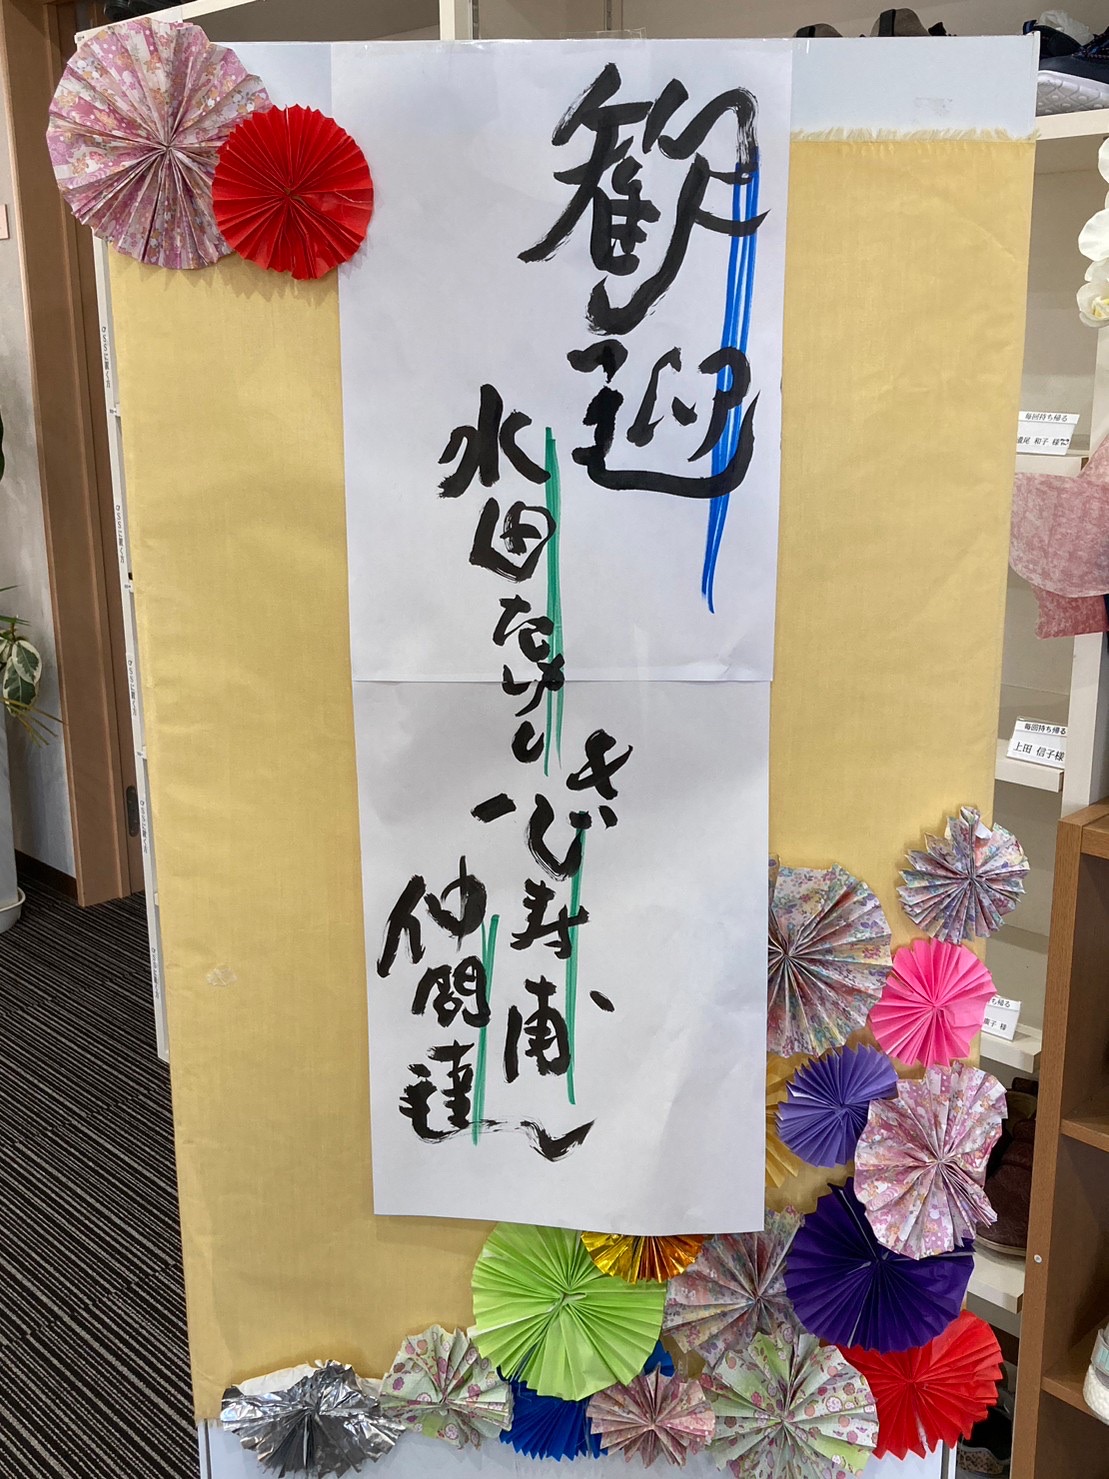 歓迎
水田たけし
きび寿甫
仲間達
毎回持ち帰る
尾 和子 様
毎回持ち帰る
上田 信子様
ち帰る
子 様